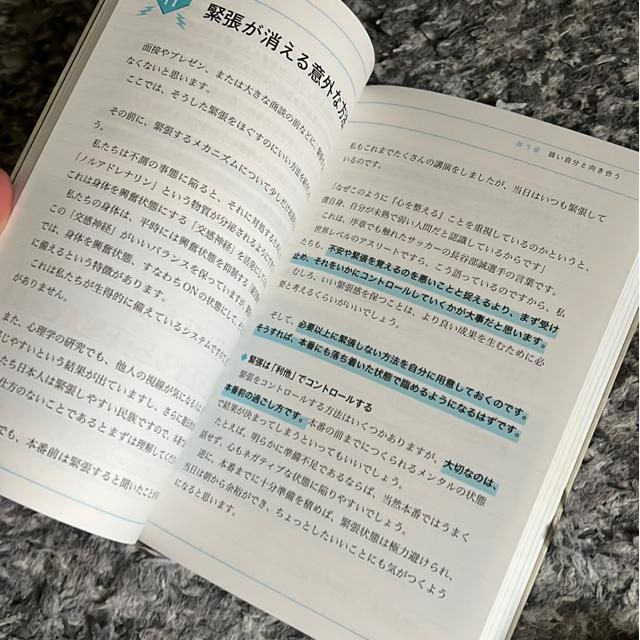 11
緊張が消える意外な方法
面接やプレゼン、または大きな商談の前などに、緊張し
なくないと思います。
ここでは、そうした緊張をほぐすのにいい方法を
その前に、緊張するメカニズムについて少しだけお
う。
私たちは不測の事態に陥ると、それに対処するため
「ノルアドレナリン」という物質が分泌されるように
これは身体を興奮状態にする「交感神経」を活発にし
私たちの身体は、平時には興奮状態を抑制する「副交
この「交感神経」がいいバランスを保っていますが、
では、身体を興奮状態、すなわちONの状態にして、
に備えるという特徴があります。
これは私たちが生得的に備えているシステムですので、
ありません。
また、心理学の研究でも、他人の視線が気になる
しやすいという結果が出ていますし、さらに
たち日本人は緊張しやすい民族ですので、
仕方のないことであるとまずは理解してくだ
でも、本番前は緊張すると聞いたこと
第1章 弱い自分と向き合う
私もこれまでたくさんの講演をしましたが、当日はいつも緊張して
いるのです。
「なぜこのように『心を整える』ことを重視しているのかというと、
僕自身、自分が未熟で弱い人間だと認識しているからです」
これは、序章でも触れたサッカーの長谷部誠選手の言葉です。
世界レベルのアスリートですら、こう語っているのですから、私
たちも、不安や緊張を覚えるのを悪いことと捉えるより、まず受け
止め、それをいかにコントロールしていくかが大事だと思います。
むしろ、いい緊張感を保つことは、より良い成果を生むために必
要と考えるくらいがいいでしょう。
そして、必要以上に緊張しない方法を自分に用意しておくのです。
そうすれば、本番にも落ち着いた状態で臨めるようになるはずです。
◆緊張は「利他」でコントロールする
緊張をコントロールする方法はいくつかありますが、大切なのは、
本番前の過ごし方です。本番の前までにつくられるメンタルの状態
で結果が決まってしまうといってもいいでしょう。
たとえば、明らかに準備不足であるならば、当然本番ではうまく
話せず、心もネガティブな状態に陥りやすいでしょう。
逆に、本番までに十分準備を積めば、緊張状態は極力避けられ、
当日は朝から余裕ができ、ちょっとしたいいことにも気がつくよう
になると思います。